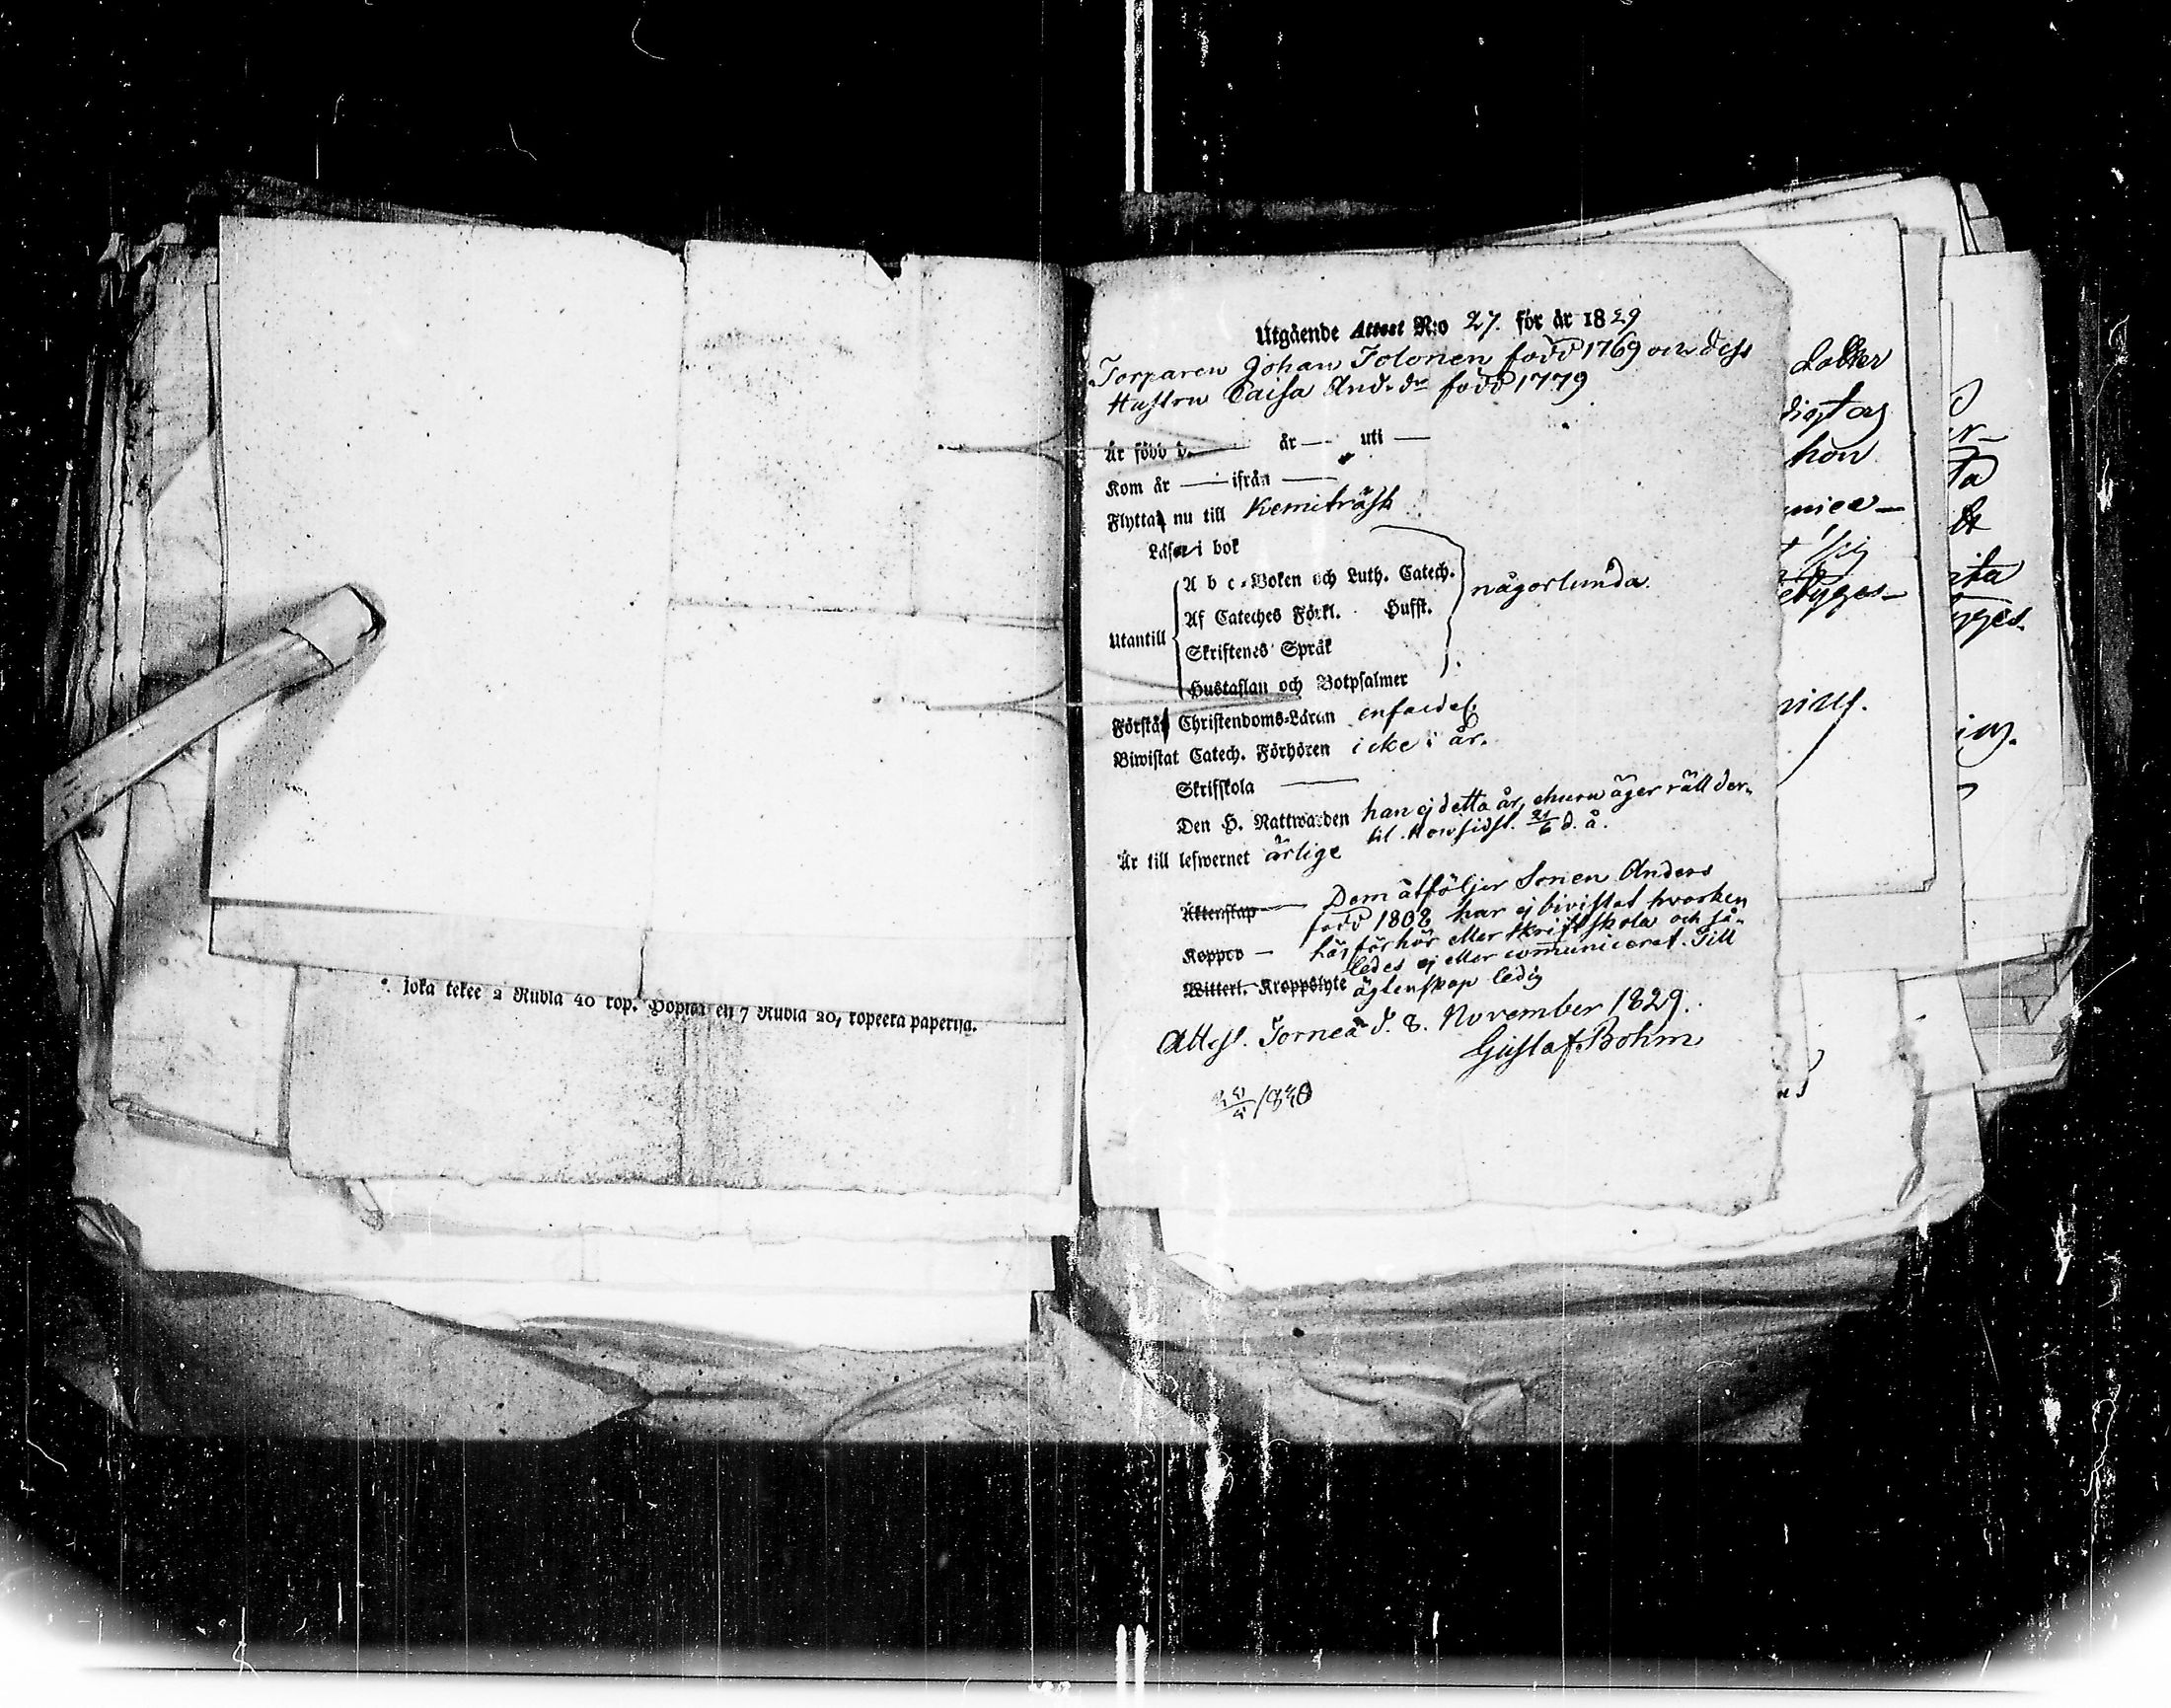 joka tekee 2 Rubla 40 kop. Hopias eli 7 Rubla 20, kopeeka paperisa.
Utgående Attest N:o 27. för år 1829
Torparen Johan Tolonen född 1769 och dess
Hustru Caisa And. dr född 1779
Är född d. — år — uti —
Kom år — ifrån —
Flyttar nu till Kemiträsk
Läser i bok
A b c-Boken och Luth. Catech.
Utantill Af Cateches Förkl. Hufst. någorlunda.
Skriftenes Språk
Hustaflan och Botpsalmer
Förstår Christendoms-Läran enfaldel.
Biwistat Catech. Förhören icke i år.
Skrifskola —
Den H. Nattwarden han ej detta år, ehuru äger rätt der-
til. Hon sidst. 21/6 d. å.
Är till lefwernet ärlige
Äktenskap — Dem åtföljer Sonen Anders
född 1808 har ej bivistat hvarken
Koppor — läsförhör eller skriftskola och så-
ledes ej eller communiceret. Till
Witterl. Kroppslyte ägtenskap ledig
Attest. Torneå d. 8. November 1829.
Gustaf Bohm
/830
dotter
hon